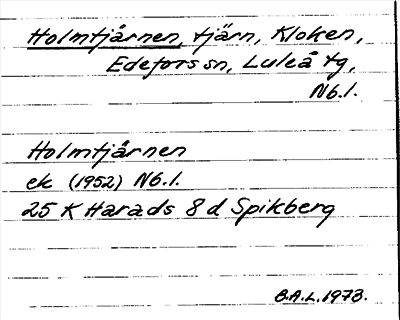 Holmtjärnen, tjärn, Kloken,
Edefors sn, Luleå tg,
Nb.l.
Holmtjärnen
ek (1952) Nb.l.
25 K Harads 8 d Spikberg
B.A.L. 1973.